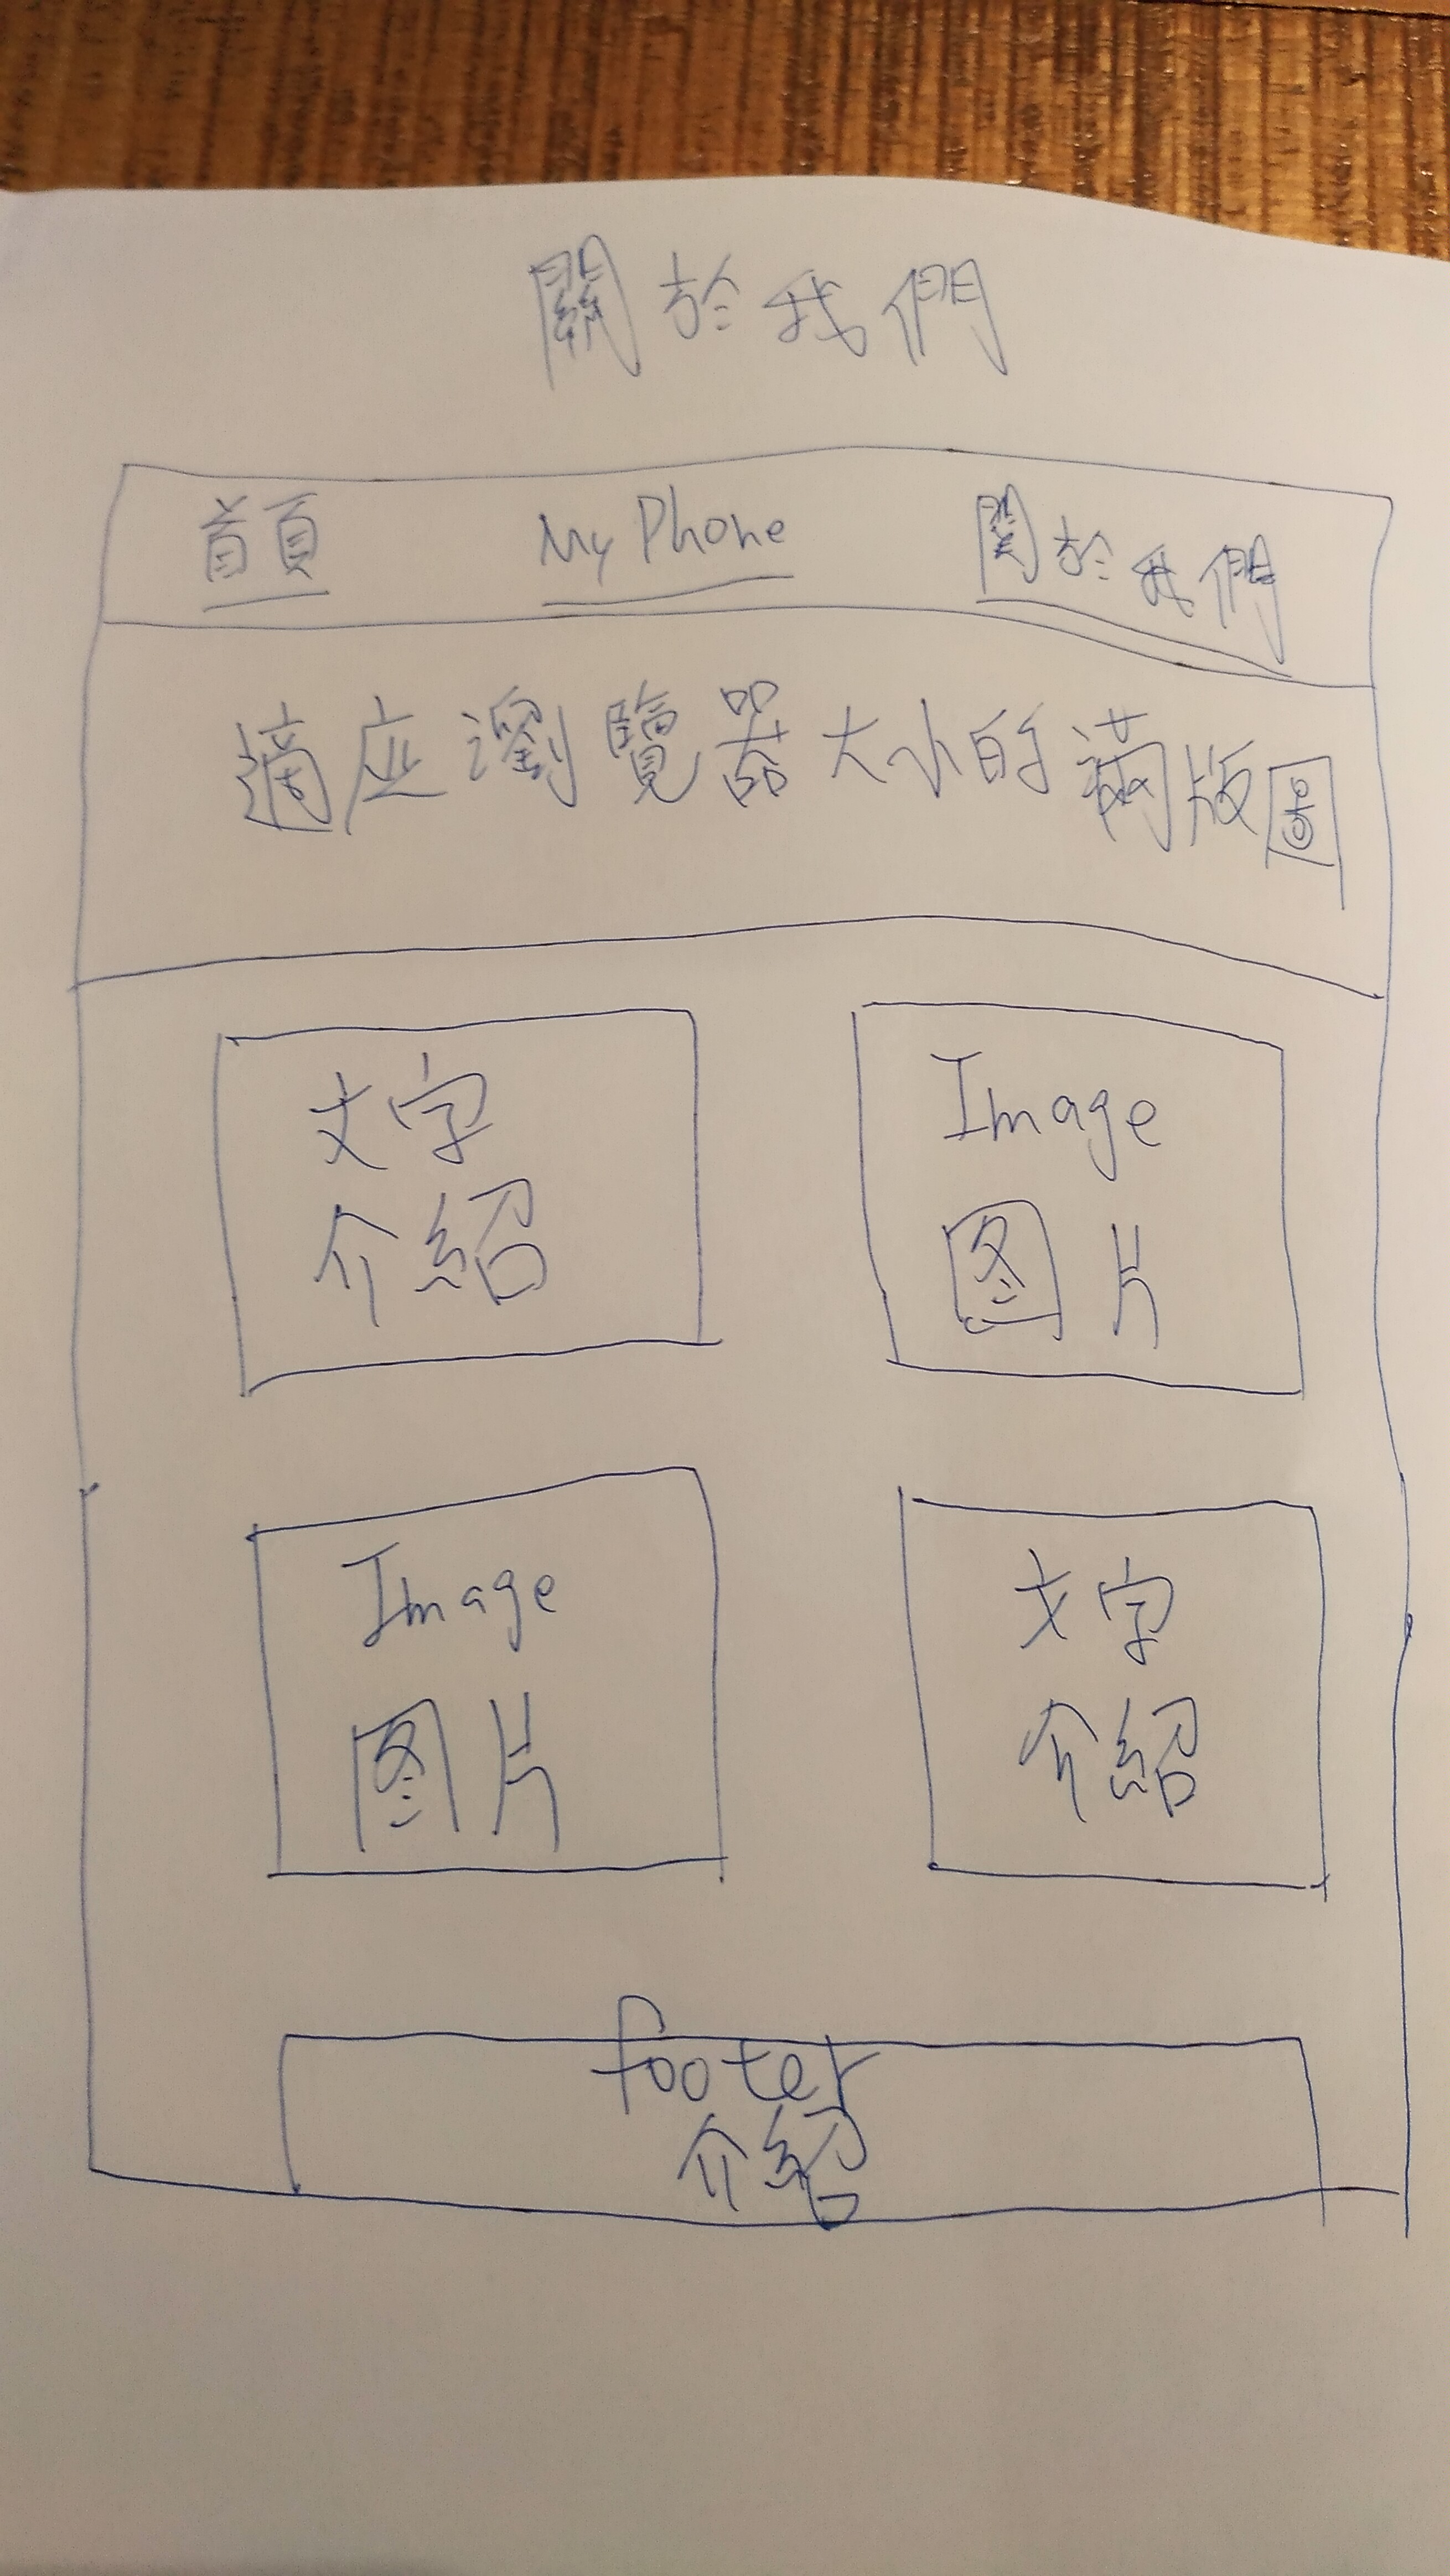 關於我們
首頁 My Phone 關於我們
適应瀏覽器大小的滿版圖
文字 Image
介紹 图片
Image 文字
图片 介紹
footer
介紹